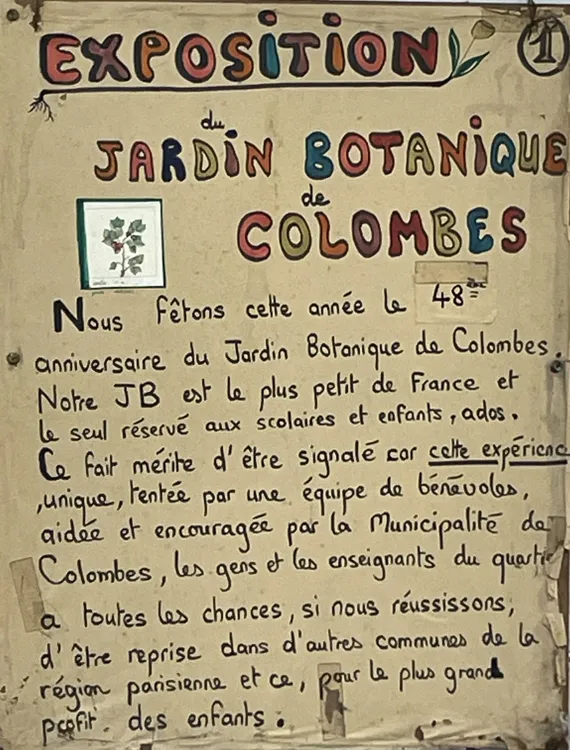 EXPOSITION
1
du
JARDIN BOTANIQUE
de
COLOMBES
Nous fêtons cette année le 48
anniversaire du Jardin Botanique de Colombes.
Notre JB est le plus petit de France et
le seul réservé aux scolaires et enfants, ados.
Ce fait mérite d'être signalé car cette expérienc
,unique, tentée par une équipe de bénévoles,
aidée et encouragée par la Municipalité de
Colombes, les gens et les enseignants du quartie
a toutes les chances, si nous réussissons,
d'être reprise dans d'autres communes de la
région parisienne et ce, pour le plus grand
profit des enfants.